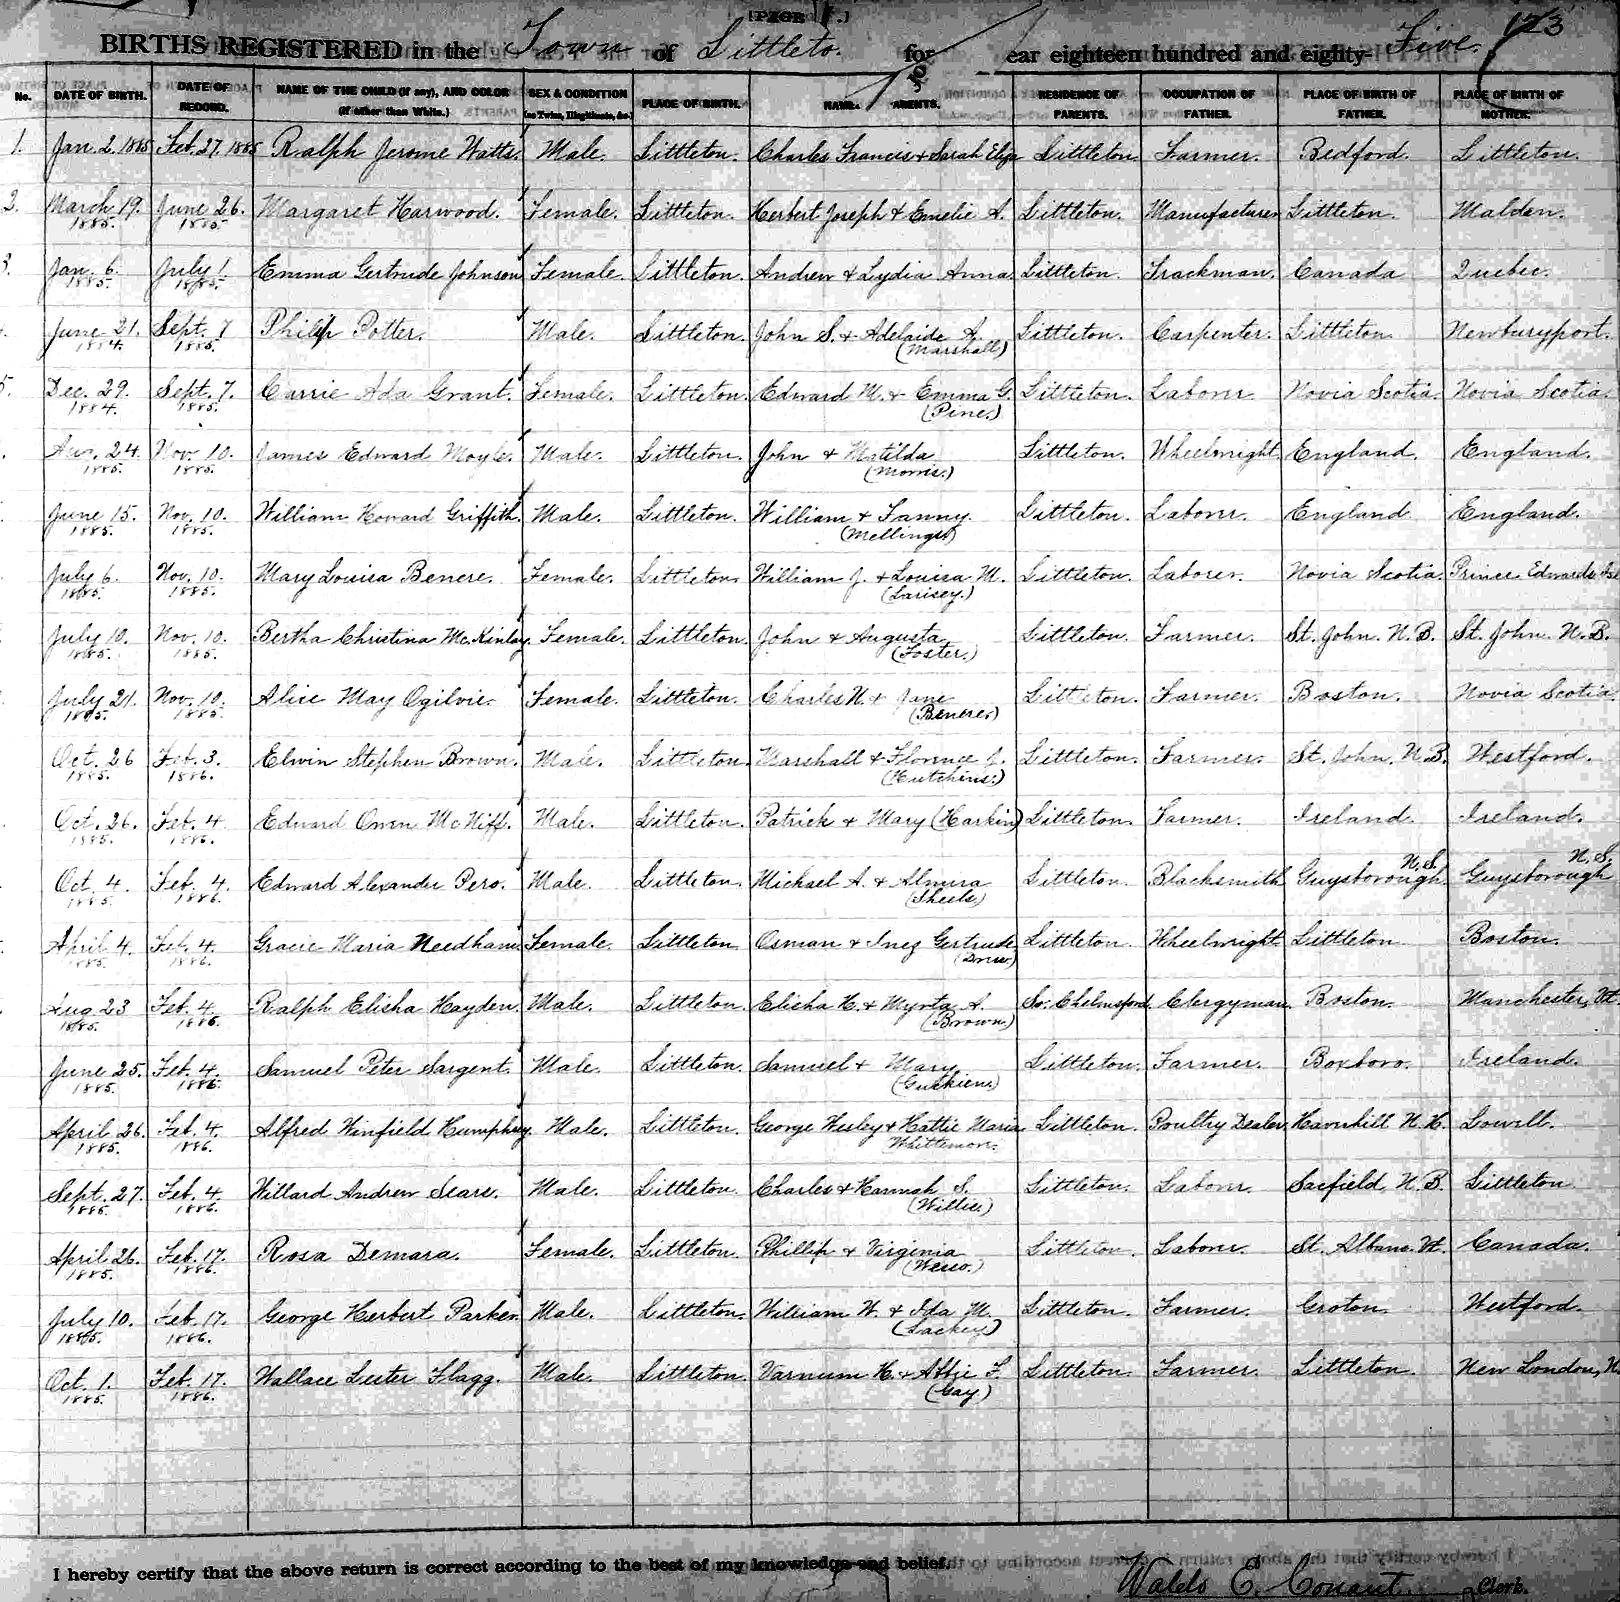 [PAGE 1.]
123
BIRTHS REGISTERED in the Town of Littleton for ear eighteen hundred and eighty-Five.
No. DATE OF BIRTH. DATE OF RECORD. NAME OF THE CHILD (if any), AND COLOR (if other than White.) SEX & CONDITION (as Twins, Illegitimate, &c.) PLACE OF BIRTH. NAMES PARENTS. RESIDENCE OF PARENTS. OCCUPATION OF FATHER. PLACE OF BIRTH OF FATHER. PLACE OF BIRTH OF MOTHER.
1. Jan. 2. 1885 Feb. 27. 1885 Ralph Jerome Watts. Male. Littleton. Charles Francis & Sarah Eliza Littleton. Farmer. Bedford. Littleton.
2. March 19. 1885. June 26. 1885. Margaret Harwood. Female. Littleton. Herbert Joseph & Emelie A. Littleton. Manufacturer Littleton. Malden.
3. Jan. 6. 1885. July 1. 1885. Emma Gertrude Johnson Female. Littleton. Andrew & Lydia Anna. Littleton. Trackman. Canada Quebec.
June 21. 1884. Sept. 7 1885. Philip Potter. Male. Littleton. John S. & Adelaide A. (Marshall) Littleton. Carpenter. Littleton. Newburyport.
5. Dec. 29. 1884. Sept. 7. 1885. Carrie Ada Grant. Female. Littleton. Edward M. & Emma G. (Pine.) Littleton. Laborer. Novia Scotia. Novia Scotia.
Aug. 24. 1885. Nov. 10. 1885. James Edward Moyle. Male. Littleton. John & Matilda (Morris.) Littleton. Wheelwright. England. England.
June 15. 1885. Nov. 10. 1885. William Howard Griffith. Male. Littleton. William & Fanny. Littleton. Laborer. England England.
July 6. 1885. Nov. 10. 1885. Mary Louisa Benere. Female. Littleton. William J. & Louisa M. (Larisey.) Littleton. Laborer. Novia Scotia. Prince Edwards Isle
July 10. 1885. Nov. 10. 1885. Bertha Christina McKinlay. Female. Littleton. John & Augusta (Foster.) Littleton. Farmer. St. John. N. B. St. John. N. B.
July 21. 1885. Nov. 10. 1885. Alice May Ogilvie. Female. Littleton. Charles N. & Jane (Benere.) Littleton. Farmer. Boston. Novia Scotia
Oct. 26 1885. Feb. 3. 1886. Elwin Stephen Brown. Male. Littleton. Marshall & Florence J. (Hutchins.) Littleton. Farmer. St. John. N. B. Westford.
Oct. 26. 1885. Feb. 4. 1886. Edward Owen McNiff. Male. Littleton. Patrick & Mary (Harkin) Littleton. Farmer. Ireland. Ireland.
Oct. 4. 1885. Feb. 4. 1886. Edward Alexander Pero. Male. Littleton. Michael A. & Almira (Sheels.) Littleton. Blacksmith Guysborough. N. S. Guysborough N. S.
April 4. 1885. Feb. 4. 1886. Gracie Maria Needham Female. Littleton Osman & Inez Gertrude Littleton. Wheelwright. Littleton Boston.
Aug. 23 1885. Feb. 4. 1886. Ralph Elisha Hayden. Male. Littleton. Elisha H. & Myrta A. (Brown.) So. Chelmsford. Clergyman. Boston. Manchester, Vt.
June 25. 1885. Feb. 4. 1886. Samuel Peter Sargent. Male. Littleton. Samuel & Mary Littleton. Farmer. Boxboro. Ireland.
April 26. 1885. Feb. 4. 1886. Alfred Winfield Humphrey. Male. Littleton. George Wesley & Hattie Maria Whittemore. Littleton. Poultry Dealer. Haverhill N. H. Lowell.
Sept. 27. 1885. Feb. 4. 1886. Willard Andrew Seare. Male. Littleton. Charles & Hannah S. (Willie.) Littleton. Laborer. N. B. Littleton
April 26. 1885. Feb. 17. 1886. Rosa Demara. Female. Littleton. Phillip & Virginia Littleton. Laborer. St. Albans. Vt. Canada.
July 10. 1885. Feb. 17. 1886. George Herbert Parker. Male. Littleton. William W. & Ida M. (Lackey) Littleton. Farmer. Groton. Westford.
Oct. 1. 1885. Feb. 17. 1886. Wallace Lester Flagg. Male. Littleton. Varnum H. & Abbie F. (Gay) Littleton. Farmer. Littleton. New London, N.
I hereby certify that the above return is correct according to the best of my knowledge and belief.
Waldo E. Conant. Clerk.